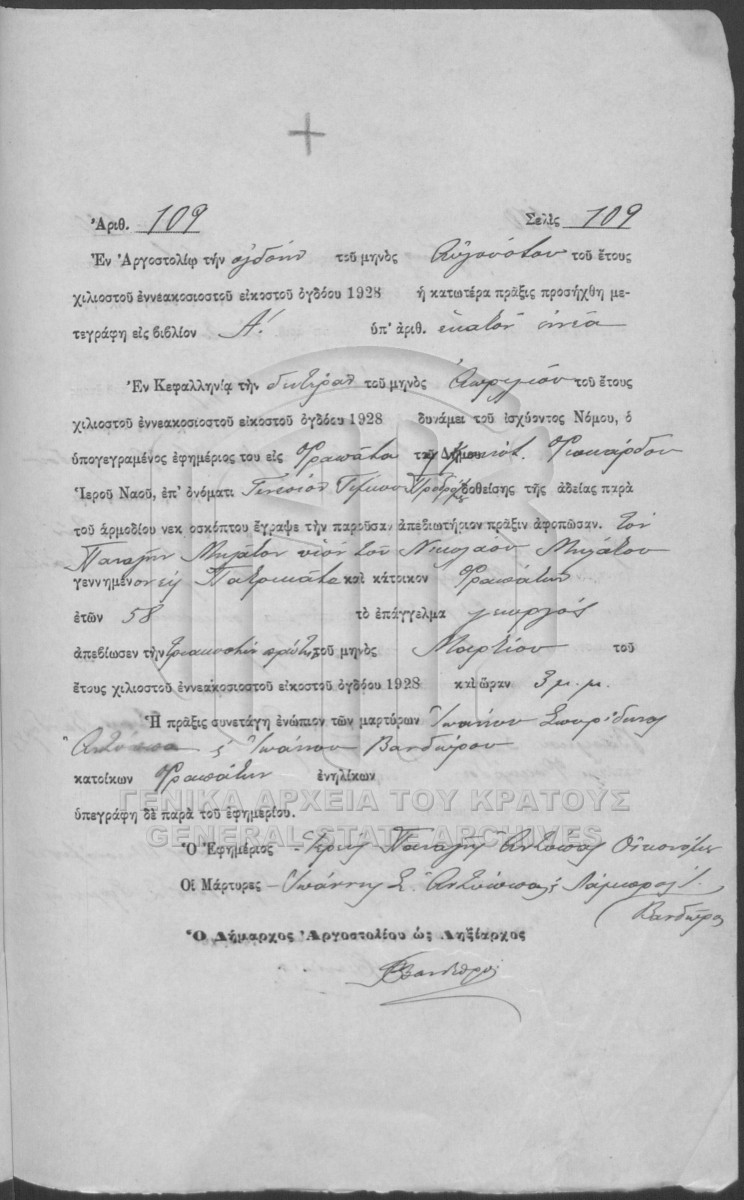 Ἀριθ. 109 Σελὶς 109
Ἐν Ἀργοστολίῳ τὴν ὀγδόην τοῦ μηνὸς Αὐγούστου τοῦ ἔτους
χιλιοστοῦ ἐννεακοσιοστοῦ εἰκοστοῦ ὀγδόου 1928 ἡ κατωτέρα πρᾶξις προσήχθη με-
τεγράφη εἰς βιβλίον Α! ὑπ' ἀριθ. ἑκατὸν ἐννέα
Ἐν Κεφαλληνίᾳ τὴν δευτέραν τοῦ μηνὸς Ἀπριλίου τοῦ ἔτους
χιλιοστοῦ ἐννεακοσιοστοῦ εἰκοστοῦ ὀγδόου 1928 δυνάμει τοῦ ἰσχύοντος Νόμου, ὁ
ὑπογεγραμένος ἐφημέριος του εἰς Φραπάτα τοῦ Δήμου Κοινότ. Φισκάρδου
Ἱεροῦ Ναοῦ, ἐπ' ὀνόματι Γενεσίου Τιμίου Προδρόμου δοθείσης τῆς ἀδείας παρὰ
τοῦ ἁρμοδίου νεκ οσκόπτου ἔγραψε τὴν παροῦσαν ἀπεδιωτήριον πρᾶξιν ἀφοπῶσαν. τὸν
Παναγῆν Μιλᾶτον υἱὸν τοῦ Νικολάου Μιλάτου
γεννημένον εἰς Πατρικάτα καὶ κάτοικον Φραπάτων
ἐτῶν 58 τὸ ἐπάγγελμα γεωργός
ἀπεβίωσεν τὴν τριακοστὴν πρώτην τοῦ μηνὸς Μαρτίου τοῦ
ἔτους χιλιοστοῦ ἐννεακοσιοστοῦ εἰκοστοῦ ὀγδόου 1928 καὶ ὥραν 3 μ.μ.
Ἡ πρᾶξις συνετάγη ἐνώπιον τῶν μαρτύρων Ἰωάννου Σπυρίδωνος
Ἀντύπα ς Ἰωάννου Βανδώρου
κατοίκων Φραπάτων ἐνηλίκων
ὑπεγράφη δὲ παρὰ τοῦ ἐφημερίου.
ΓΕΝΙΚΑ ΑΡΧΕΙΑ ΤΟΥ ΚΡΑΤΟΥΣ
GENERAL STATE ARCHIVES
Ὁ Ἐφημέριος Ἱερεὺς Παναγῆς Ἀντύπας Οἰκονόμος
Οἱ Μάρτυρες Ἰωάννης Σ. Ἀντύπας, Λάμπρος Ι.
Βανδῶρος
Ὁ Δήμαρχος Ἀργοστολίου ὡς Ληξίαρχος